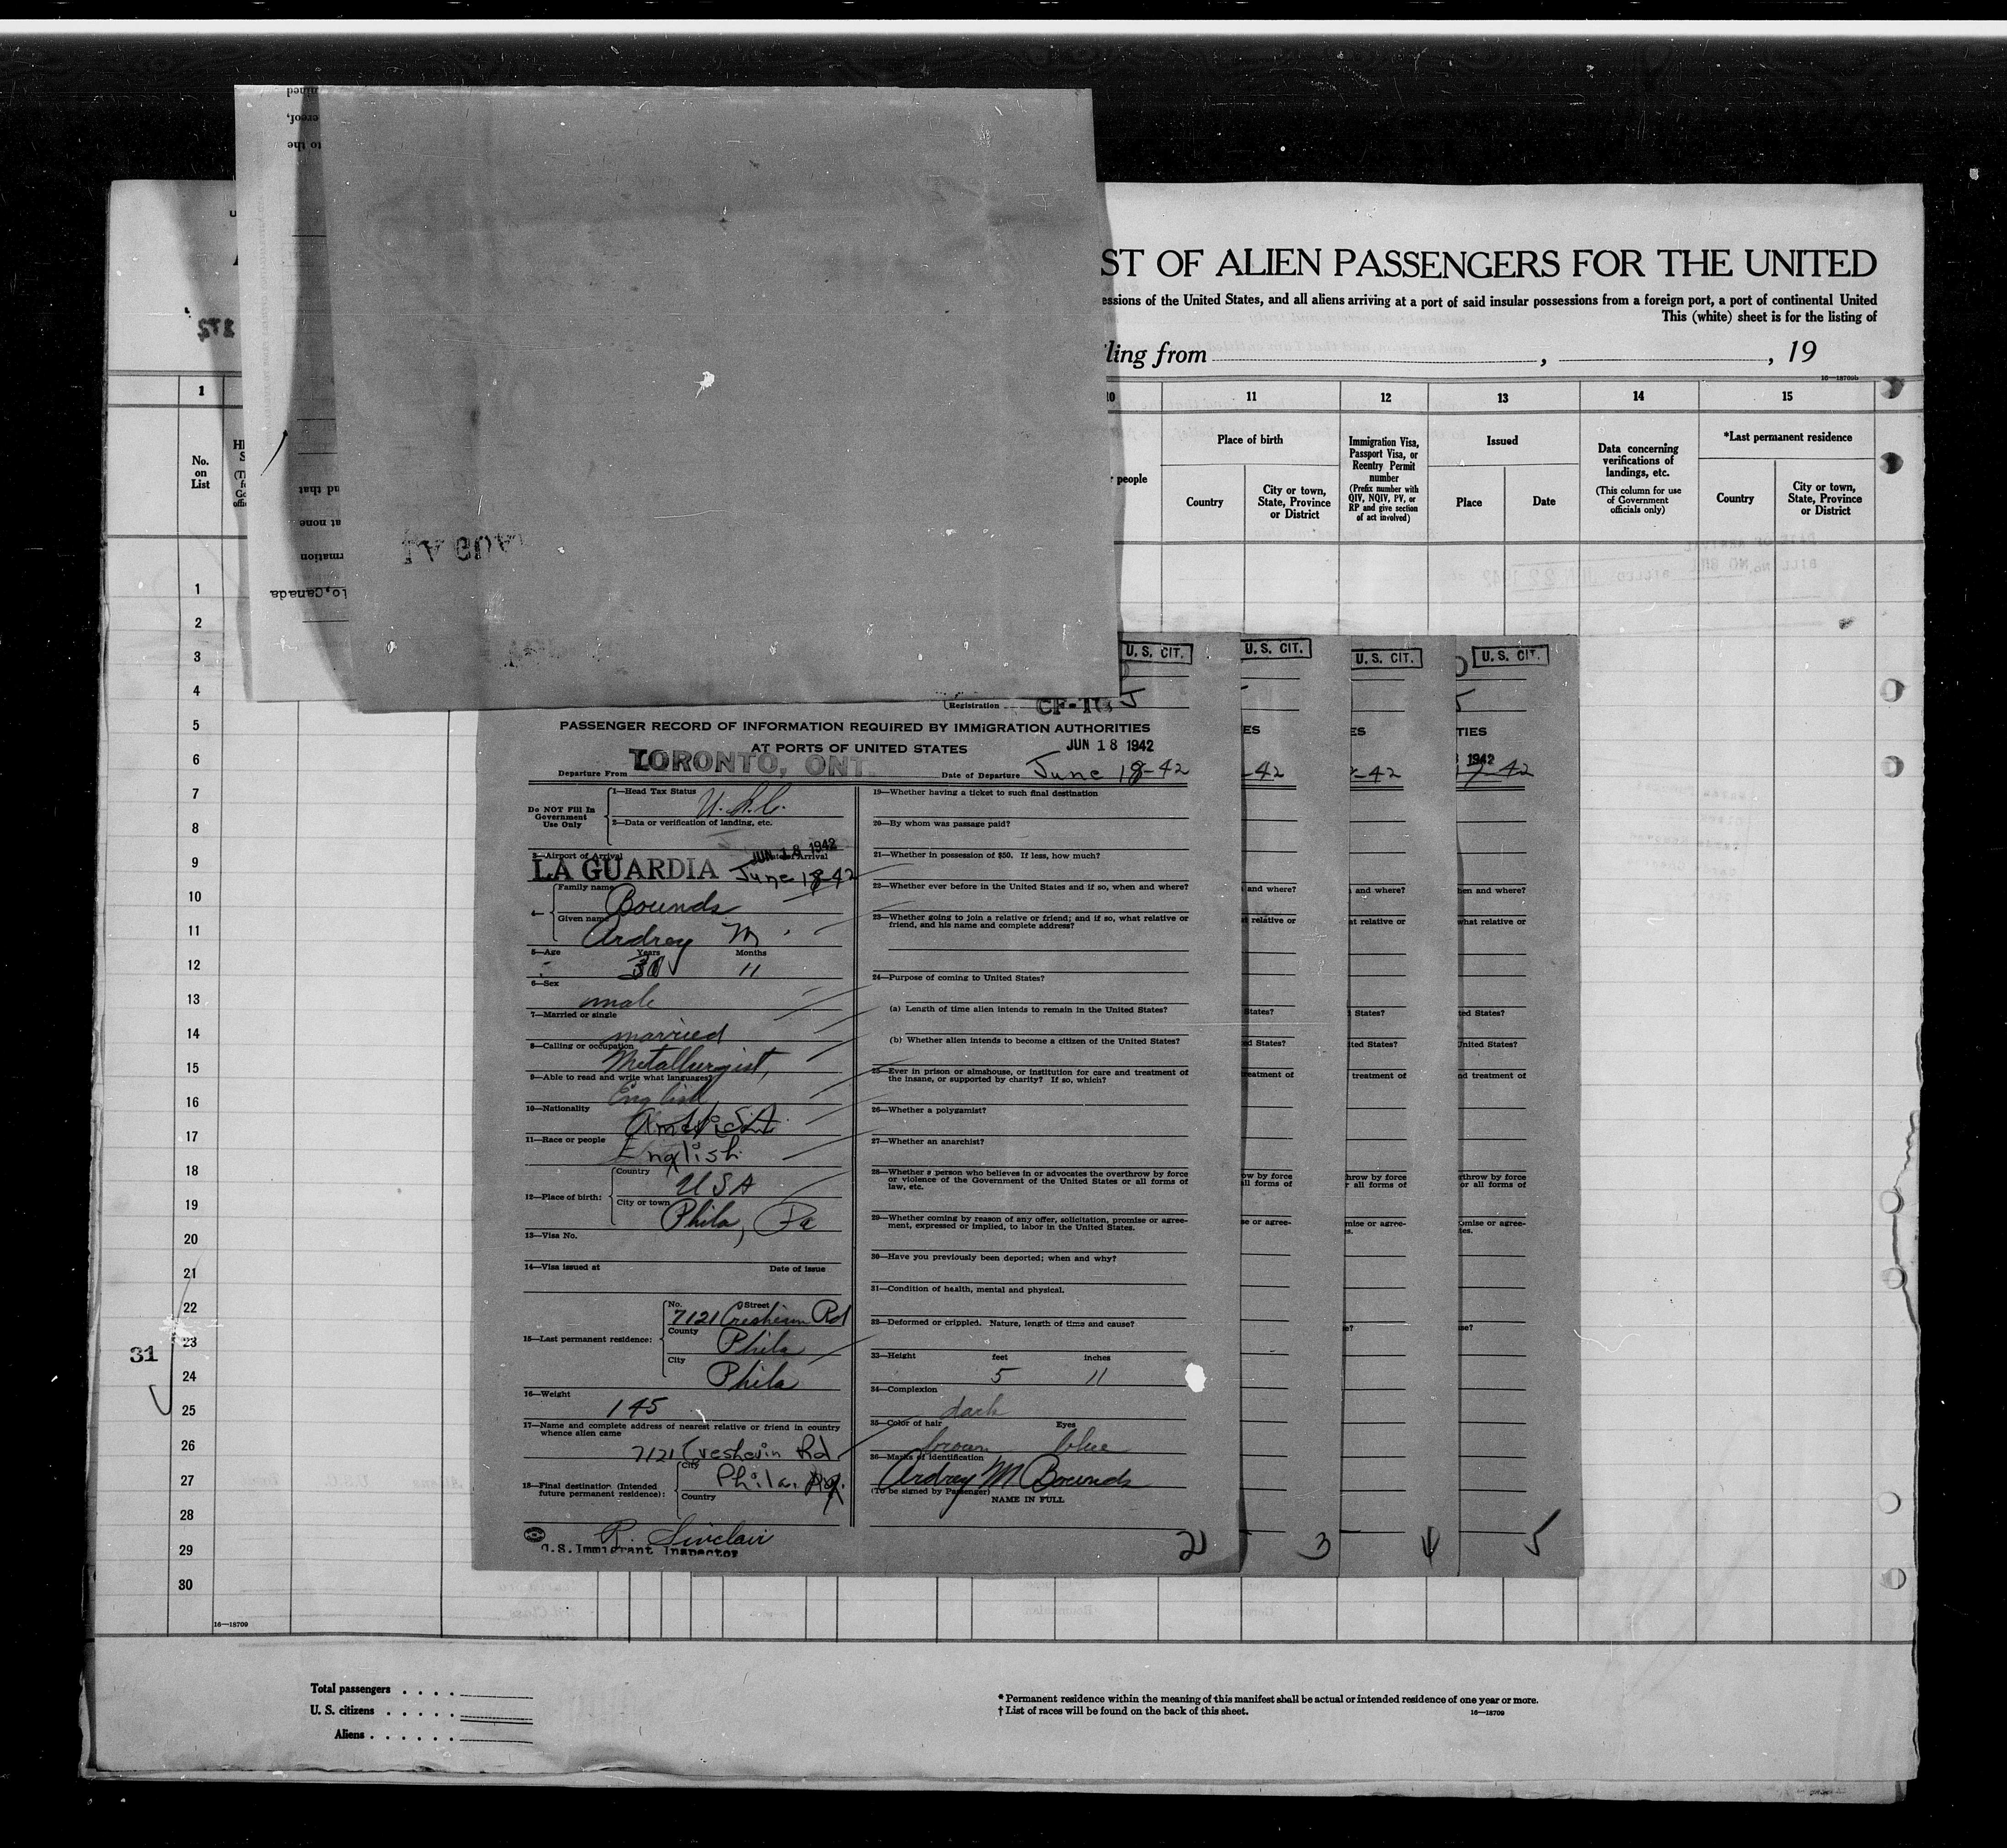 ST OF ALIEN PASSENGERS FOR THE UNITED
essions of the United States, and all aliens arriving at a port of said insular possessions from a foreign port, a port of continental United
This (white) sheet is for the listing of
ling from , , 19
16—18709b
1 10 11 12 13 14 15
No. on List
r people
Place of birth
Country
City or town, State, Province or District
Immigration Visa, Passport Visa, or Reentry Permit number
(Prefix number with QIV, NQIV, PV, or RP and give section of act involved)
Issued
Place
Date
Data concerning verifications of landings, etc.
(This column for use of Government officials only)
*Last permanent residence
Country
City or town, State, Province or District
1
2
3
4
5
6
7
8
9
10
11
12
13
14
15
16
17
18
19
20
21
22
23
24
25
26
27
28
29
30
31
16—18709
LA GUA
lo,Canada
rmation
at none
ad that
to the
ereof,
mined
U. S. CIT.
U. S. CIT.
U. S. CIT.
U. S. CIT.
Registration CF-TC J
PASSENGER RECORD OF INFORMATION REQUIRED BY IMMIGRATION AUTHORITIES
AT PORTS OF UNITED STATES
JUN 18 1942
Departure From TORONTO, ONT. Date of Departure June 18-42
Do NOT Fill In Government Use Only
1—Head Tax Status
2—Data or verification of landing, etc.
3—Airport of Arrival Date of Arrival
JUN 18 1942
LA GUARDIA June 18-42
4— Family name Bounds
Given name Ardrey M
5—Age Years Months 11
6—Sex male
7—Married or single married
8—Calling or occupation Metallurgist,
9—Able to read and write what languages? English
10—Nationality
11—Race or people English
12—Place of birth: Country USA
City or town Phila, Pa
13—Visa No.
14—Visa issued at Date of issue
15—Last permanent residence: No. Street 7121 Cresheim Rd
County Phila
City Phila
16—Weight 145
17—Name and complete address of nearest relative or friend in country whence alien came
7121 Creshein Rd
18—Final destination (Intended future permanent residence): City Phila.
Country
R. Sinclair
U.S. Immigrant Inspector
19—Whether having a ticket to such final destination
20—By whom was passage paid?
21—Whether in possession of $50. If less, how much?
22—Whether ever before in the United States and if so, when and where?
23—Whether going to join a relative or friend; and if so, what relative or friend, and his name and complete address?
24—Purpose of coming to United States?
(a) Length of time alien intends to remain in the United States?
(b) Whether alien intends to become a citizen of the United States?
25—Ever in prison or almshouse, or institution for care and treatment of the insane, or supported by charity? If so, which?
26—Whether a polygamist?
27—Whether an anarchist?
28—Whether a person who believes in or advocates the overthrow by force or violence of the Government of the United States or all forms of law, etc.
29—Whether coming by reason of any offer, solicitation, promise or agreement, expressed or implied, to labor in the United States.
30—Have you previously been deported; when and why?
31—Condition of health, mental and physical.
32—Deformed or crippled. Nature, length of time and cause?
33—Height feet inches
5 11
34—Complexion dark
35—Color of hair Eyes
brown blue
36—Marks of identification
Ardrey M Bounds
(To be signed by Passenger)
NAME IN FULL
2 3 4 5
Total passengers . . . .
U. S. citizens . . . . .
Aliens . . . . . .
* Permanent residence within the meaning of this manifest shall be actual or intended residence of one year or more.
† List of races will be found on the back of this sheet.
16—18709